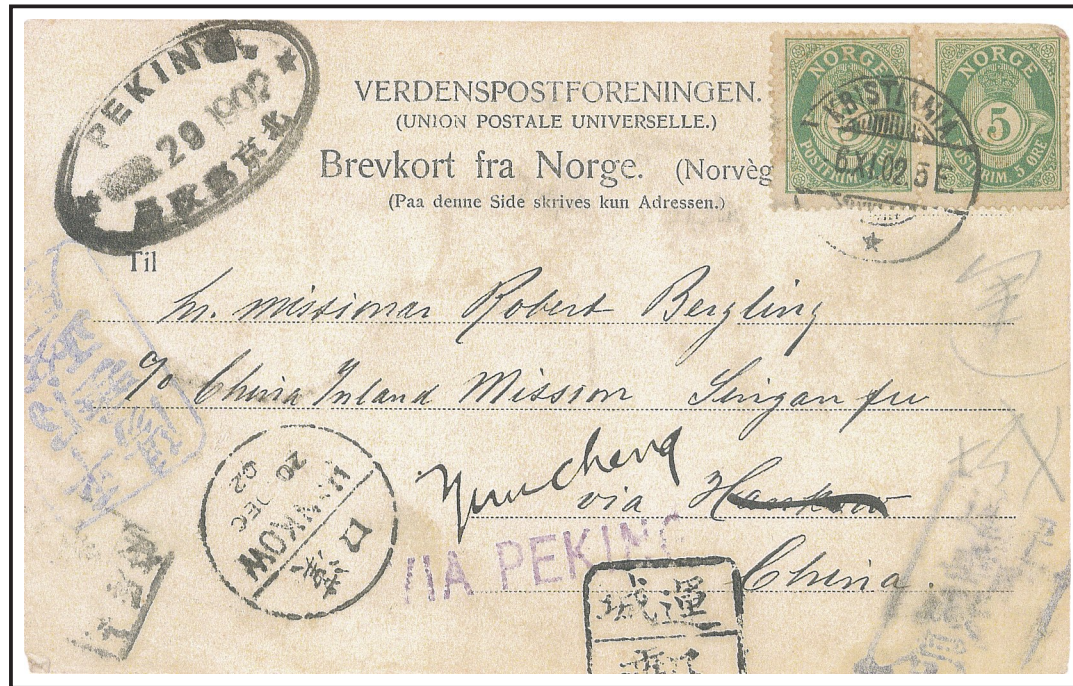 PEKING.
29 1902
北京郵政局
VERDENSPOSTFORENINGEN.
(UNION POSTALE UNIVERSELLE.)
Brevkort fra Norge. (Norvèg
(Paa denne Side skrives kun Adressen.)
NORGE
POSTFRIM.
NORGE
5
POSTFRIM. 5 ØRE
KRISTIANIA
6 XI.02. 5 E
Til
Hr. missionar Robert Bergling
c/o China Inland Mission Singan fu
Yuncheng
via Hankow
China.
HANKOW
20 DEC
02
漢口
VIA PEKING
運城